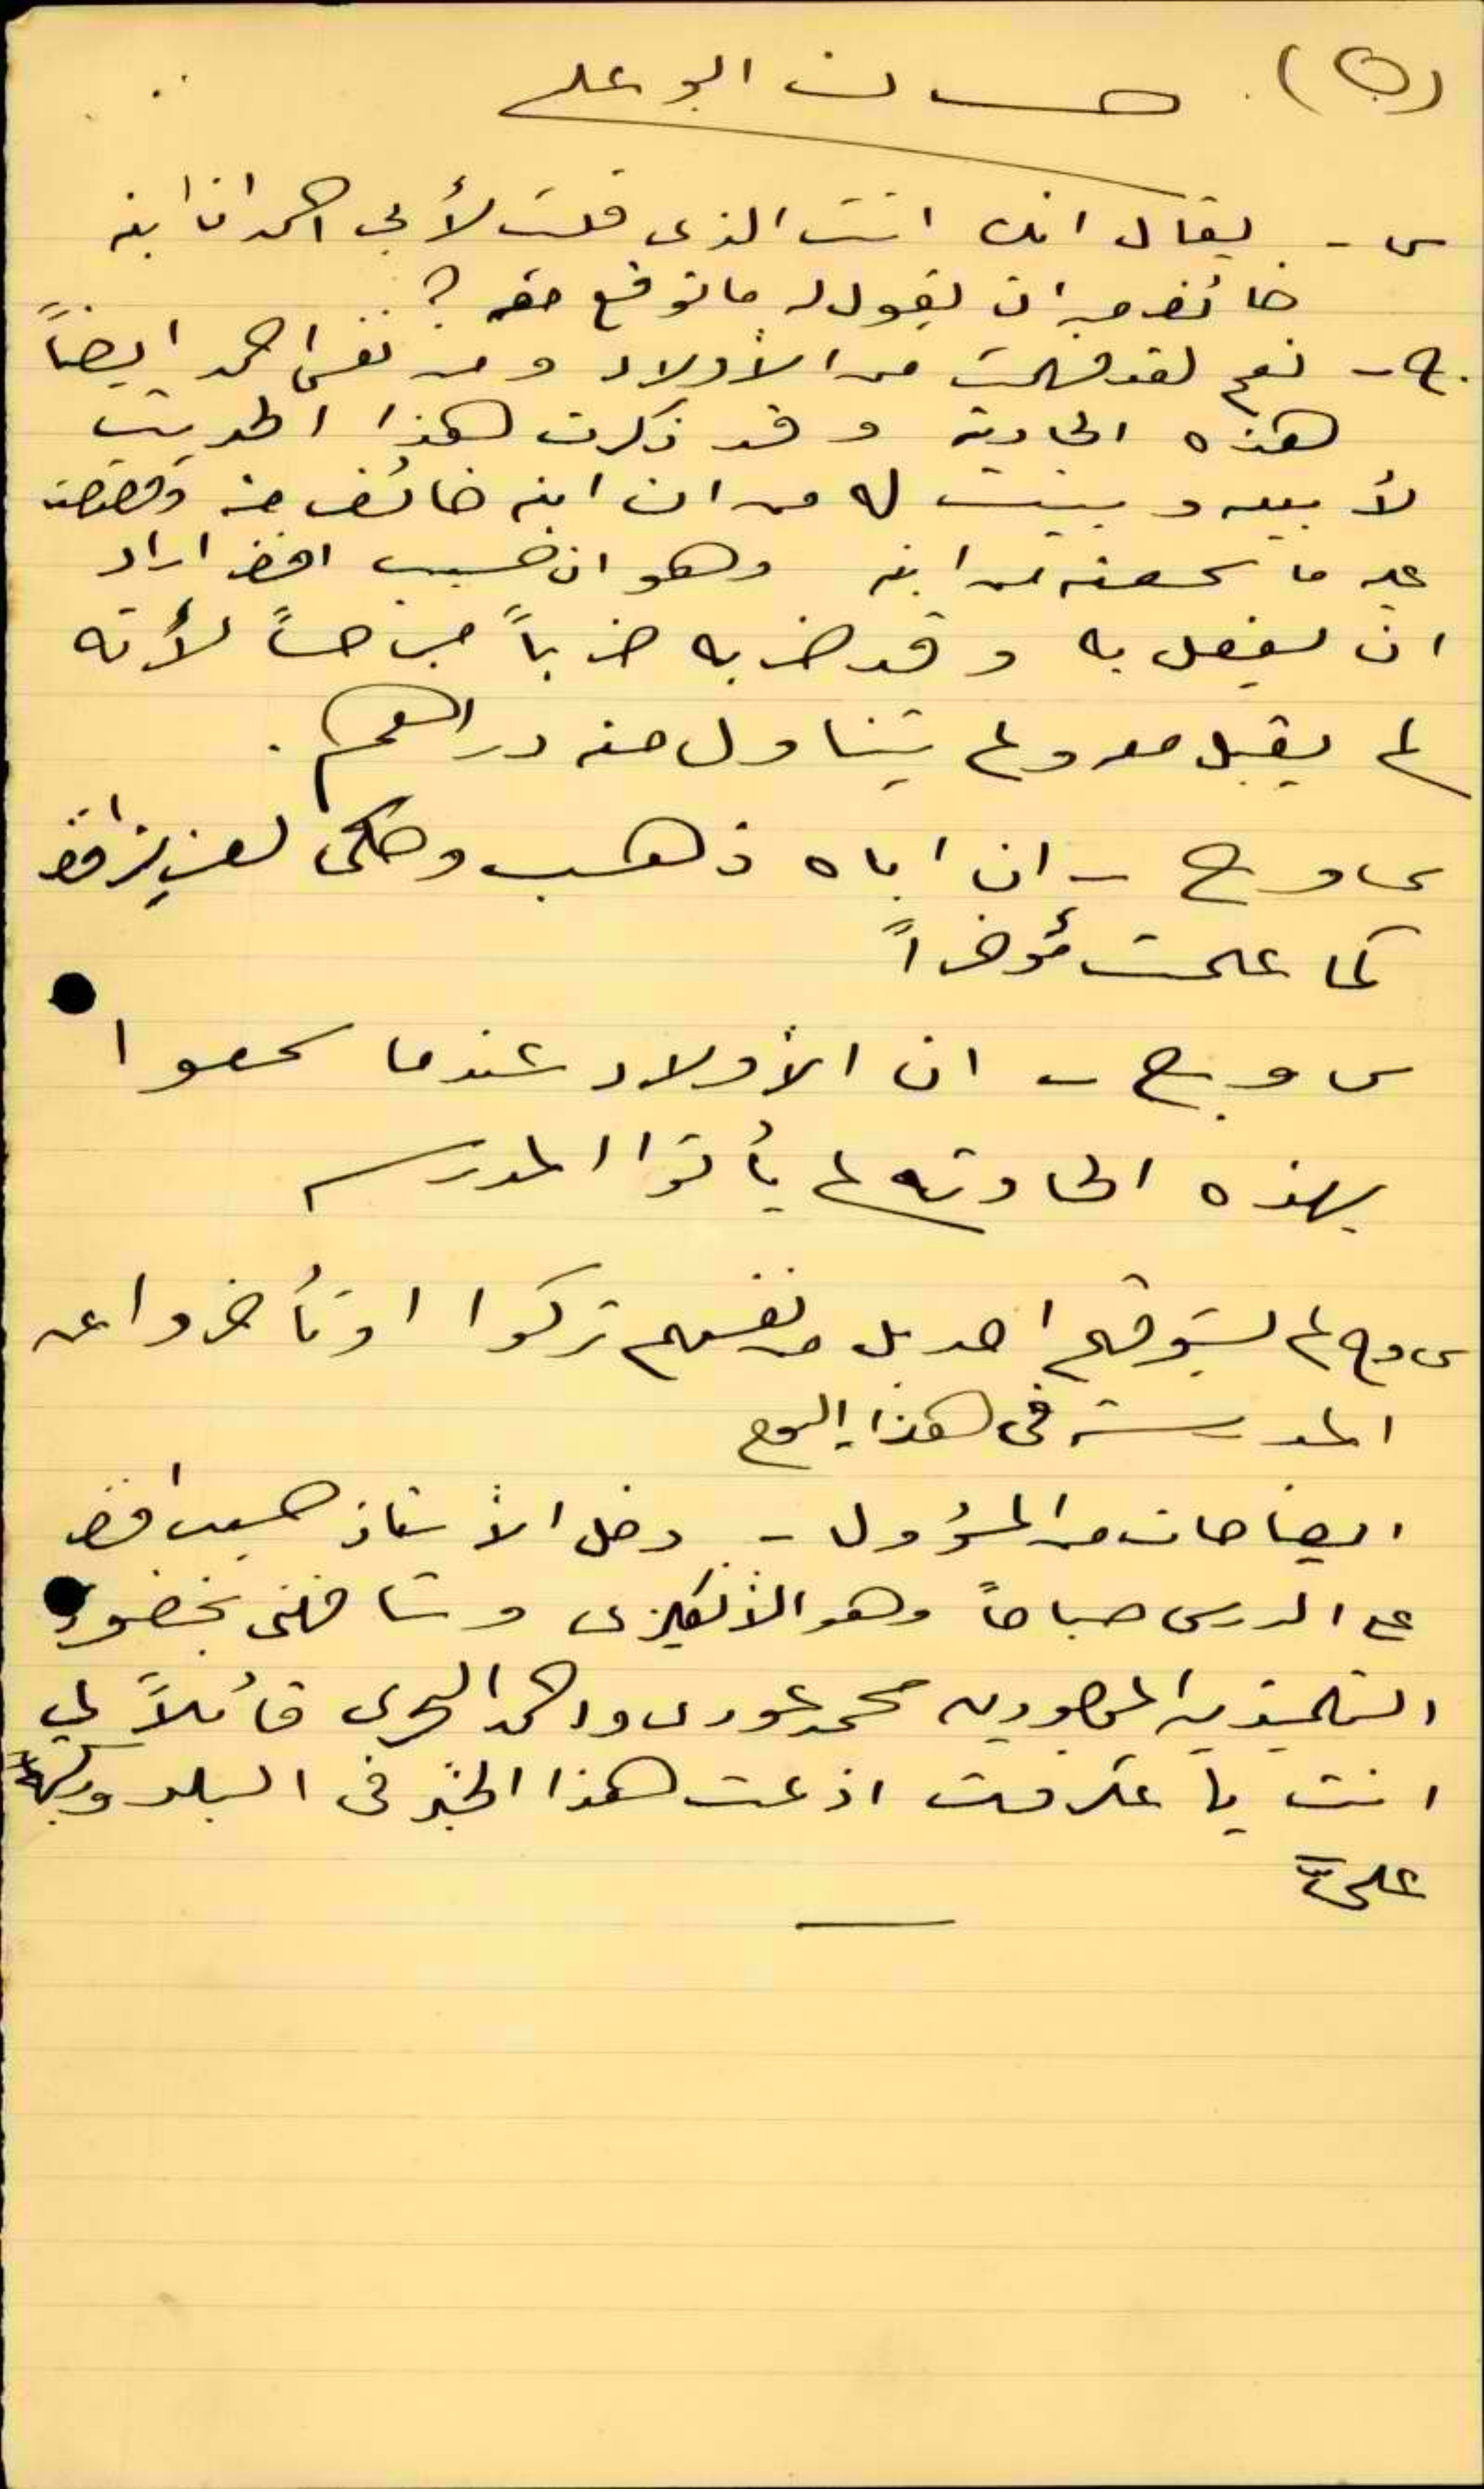 (ن). حسان ابو علي
س - يقال انك انت الذي قلت لأبي احمد ان ابنه
خائف من ان يقول له ما توقع معه ؟
ج - نعم لقد فهمت من الأولاد ومن نفس احمد ايضاً
هذه الحادثة وقد ذكرت هذا الحديث
لأبيه وبينت له من ان ابنه خائف منه وقصصت
عليه ما سمعته من ابنه وهو ان حسيب افندي اراد
ان يفعل به وقد ضربه ضرباً مبرحاً لأنه
لم يقبل معه ولم يتناول منه دراهم .
س و ج - ان اباه ذهب وحكى لعزيز افندي
كما علمت مؤخراً
س و ج - ان الأولاد عندما سمعوا
بهذه الحادثه لم يأتوا المدرسه
س و ج لم يسوقهم احد بل من نفسهم تركوا او تأخروا عن
المدرسة في هذا اليوم
ايضاحات من المسؤول - دخل الأستاذ حسيب افندي
على الدرس صباحاً وهو الأنكليزي وشافهني بحضور
التلميذين محمد عودي واحمد قائلاً لي
انت يا اذعت هذا الخبر في البلد
عليّ